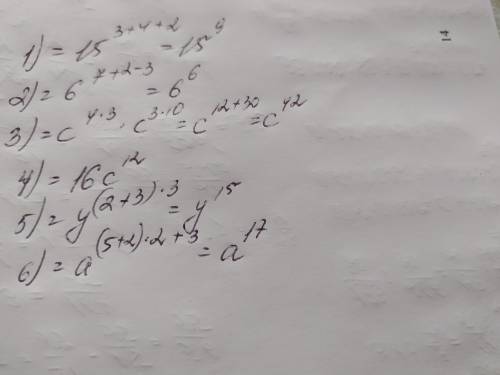 1) = 15^{3+4+2} = 15^9
2) = 6^{7+2-3} = 6^6
3) = c^{4·3} · c^{3·10} = c^{12+30} = c^{42}
4) = 16c^{12}
5) = y^{(2+3)·3} = y^{15}
6) = a^{(5+2)·2+3} = a^{17}